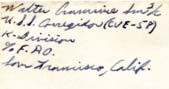 Walter Cramine Smith
U.S.S. Corregidor (CVE-58)
K-Division
% F.P.O.
San Francisco, Calif.